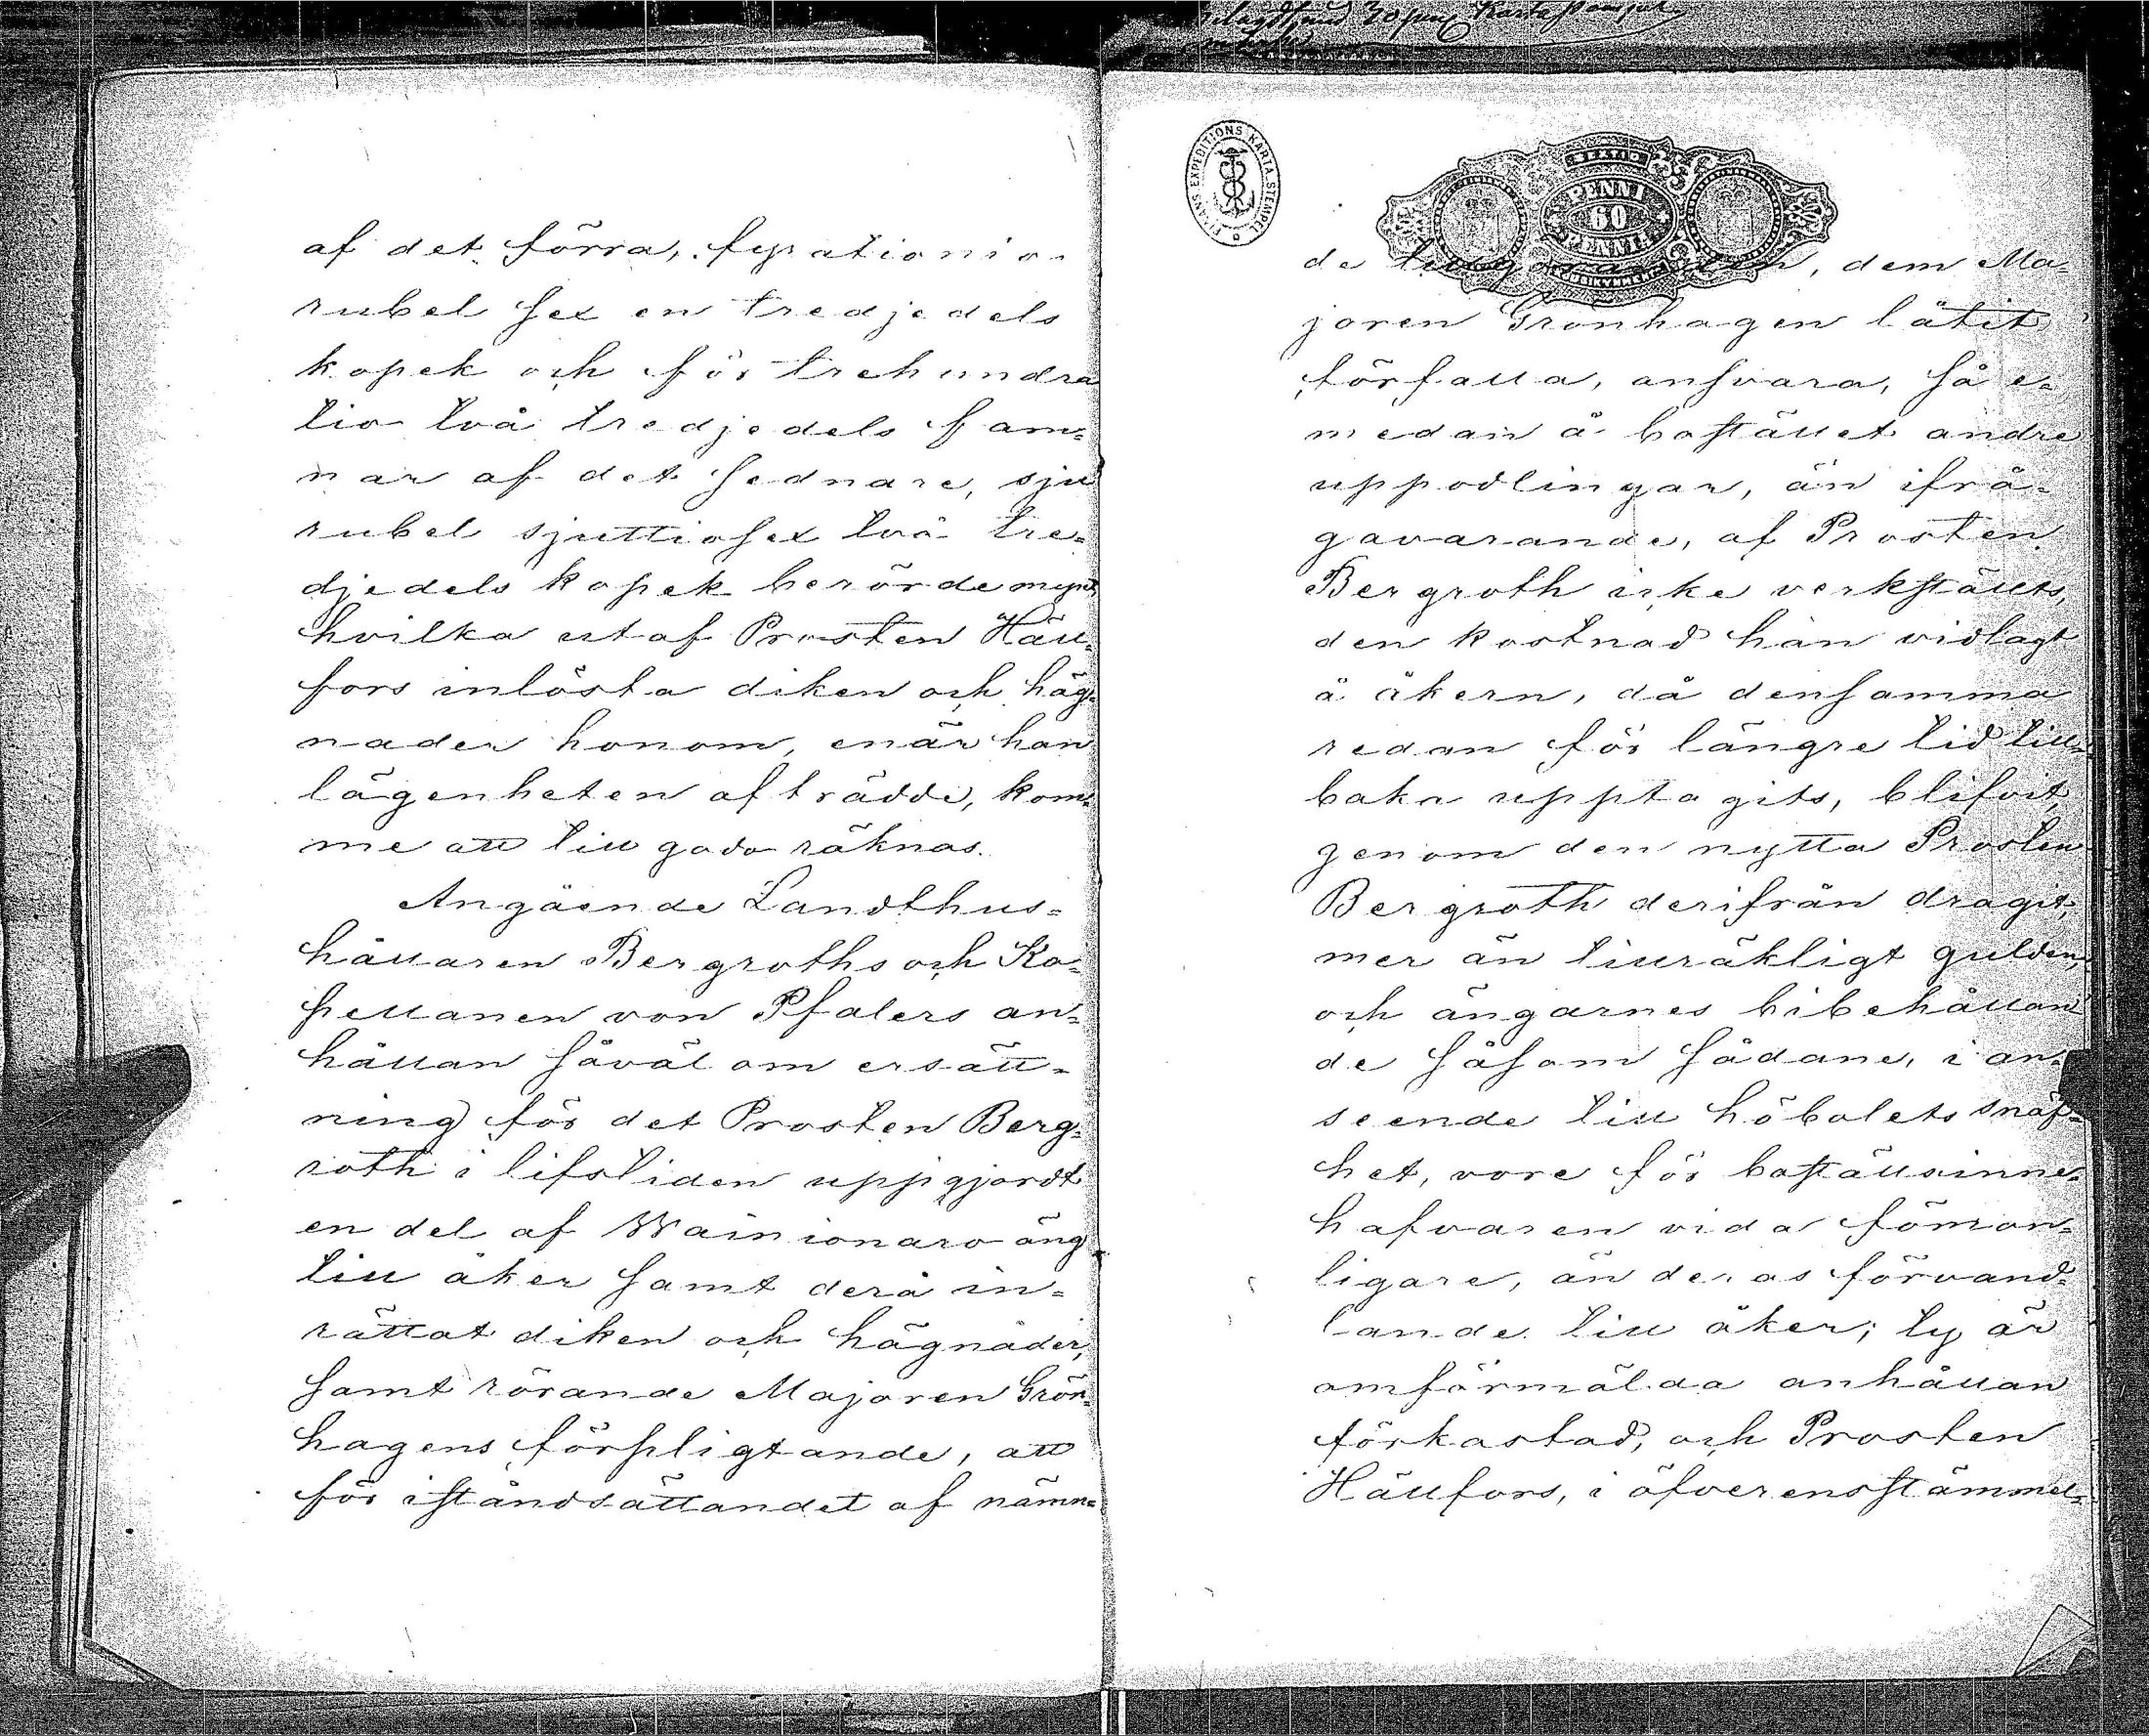 af det förra, fyrationio
rubel sex en tredjedels
kopek och för trehundra
tio två tredjedels fam-
nar af det sednare, sju
rubel sjuttiosex två tre-
djedels kopek berörde mynt
hvilka utaf Prosten Häll-
fors inlösta diken och häg-
nader honom, enär han
lägenheten afträdde, kom-
me att till godo räknas.
Angående Landthus-
hållaren Bergroths och Ka-
pellanen von Pfalers an-
hållan såväl om ersätt-
ning för det Prosten Berg-
roth i lifstiden uppgjordt
en del af Wainionaro äng
till åker samt derå in-
rättat diken och hägnader,
samt rörande Majoren Grön-
hagens förpligtande, att
för iståndsättandet af nämn-
FINANS EXPEDITIONS KARTA STEMPEL
PENNI
60
PENNIÄ
de, dem Ma-
joren Grönhagen låtit
förfalla, ansvara, så e-
medan å bostället andre
uppodlingar, än ifrå-
gavarande, af Prosten
Bergroth icke verkställts,
den kostnad han vidlagt
å åkern, då densamma
redan för längre tid till-
baka upptagits, blifvit,
genom den nytta Prosten
Bergroth derifrån dragit,
mer än tillräkligt gulden,
och ängarnes bibehållan
de såsom sådane, i an-
seende till höbolets snäf-
het, vore för boställsinne-
hafvaren vida förmon-
ligare, än deras förvand-
lande till åker; ty är
omförmälda anhållan
förkastad, och Prosten
Hällfors, i öfverensstämmel-